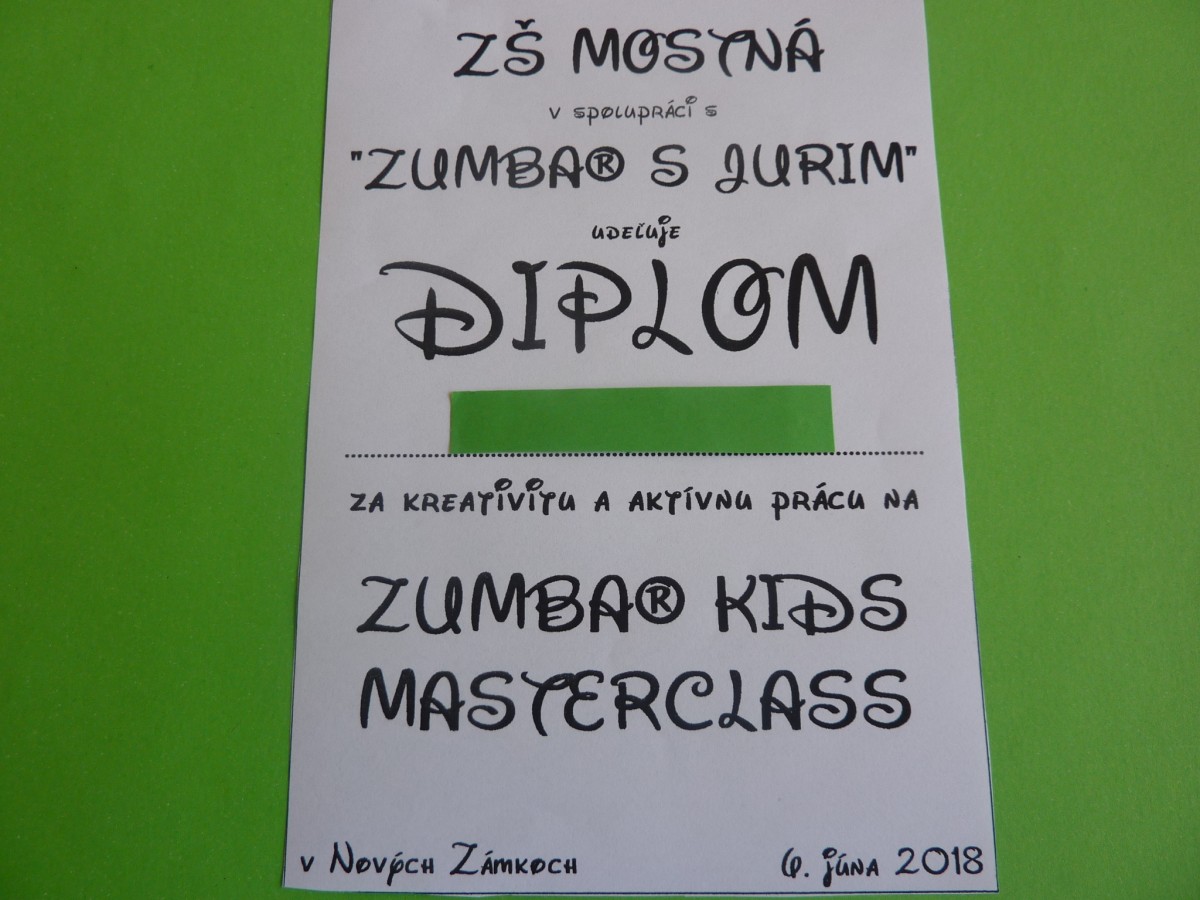 ZŠ MOSTNÁ
v spolupráci s
"ZUMBA® S JURIM"
udeľuje
DIPLOM
za kreativitu a aktívnu prácu na
ZUMBA® KIDS
MASTERCLASS
v Nových Zámkoch 6. júna 2018